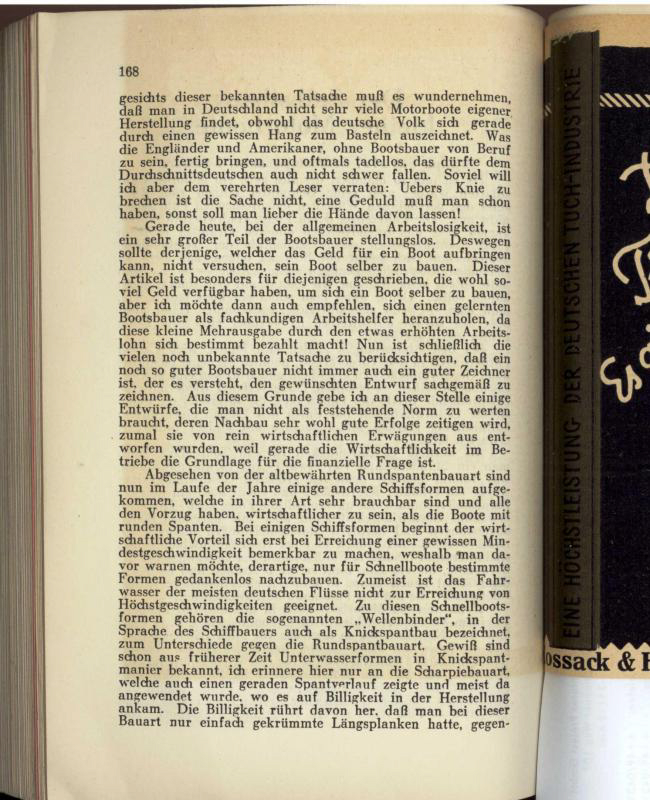 168
gesichts dieser bekannten Tatsache muß es wundernehmen,
daß man in Deutschland nicht sehr viele Motorboote eigener
Herstellung findet, obwohl das deutsche Volk sich gerade
durch einen gewissen Hang zum Basteln auszeichnet. Was
die Engländer und Amerikaner, ohne Bootsbauer von Beruf
zu sein, fertig bringen, und oftmals tadellos, das dürfte dem
Durchschnittsdeutschen auch nicht schwer fallen. Soviel will
ich aber dem verehrten Leser verraten: Uebers Knie zu
brechen ist die Sache nicht, eine Geduld muß man schon
haben, sonst soll man lieber die Hände davon lassen!
Gerade heute, bei der allgemeinen Arbeitslosigkeit, ist
ein sehr großer Teil der Bootsbauer stellungslos. Deswegen
sollte derjenige, welcher das Geld für ein Boot aufbringen
kann, nicht versuchen, sein Boot selber zu bauen. Dieser
Artikel ist besonders für diejenigen geschrieben, die wohl so-
viel Geld verfügbar haben, um sich ein Boot selber zu bauen,
aber ich möchte dann auch empfehlen, sich einen gelernten
Bootsbauer als fachkundigen Arbeitshelfer heranzuholen, da
diese kleine Mehrausgabe durch den etwas erhöhten Arbeits-
lohn sich bestimmt bezahlt macht! Nun ist schließlich die
vielen noch unbekannte Tatsache zu berücksichtigen, daß ein
noch so guter Bootsbauer nicht immer auch ein guter Zeichner
ist, der es versteht, den gewünschten Entwurf sachgemäß zu
zeichnen. Aus diesem Grunde gebe ich an dieser Stelle einige
Entwürfe, die man nicht als feststehende Norm zu werten
braucht, deren Nachbau sehr wohl gute Erfolge zeitigen wird,
zumal sie von rein wirtschaftlichen Erwägungen aus ent-
worfen wurden, weil gerade die Wirtschaftlichkeit im Be-
triebe die Grundlage für die finanzielle Frage ist.
Abgesehen von der altbewährten Rundspantenbauart sind
nun im Laufe der Jahre einige andere Schiffsformen aufge-
kommen, welche in ihrer Art sehr brauchbar sind und alle
den Vorzug haben, wirtschaftlicher zu sein, als die Boote mit
runden Spanten. Bei einigen Schiffsformen beginnt der wirt-
schaftliche Vorteil sich erst bei Erreichung einer gewissen Min-
destgeschwindigkeit bemerkbar zu machen, weshalb man da-
vor warnen möchte, derartige, nur für Schnellboote bestimmte
Formen gedankenlos nachzubauen. Zumeist ist das Fahr-
wasser der meisten deutschen Flüsse nicht zur Erreichung von
Höchstgeschwindigkeiten geeignet. Zu diesen Schnellboots-
formen gehören die sogenannten „Wellenbinder“, in der
Sprache des Schiffbauers auch als Knickspantbau bezeichnet,
zum Unterschiede gegen die Rundspantbauart. Gewiß sind
schon aus früherer Zeit Unterwasserformen in Knickspant-
manier bekannt, ich erinnere hier nur an die Scharpiebauart,
welche auch einen geraden Spantverlauf zeigte und meist da
angewendet wurde, wo es auf Billigkeit in der Herstellung
ankam. Die Billigkeit rührt davon her, daß man bei dieser
Bauart nur einfach gekrümmte Längsplanken hatte, gegen-
EINE HÖCHSTLEISTUNG DER DEUTSCHEN TUCH-INDUSTRIE
ossack & H